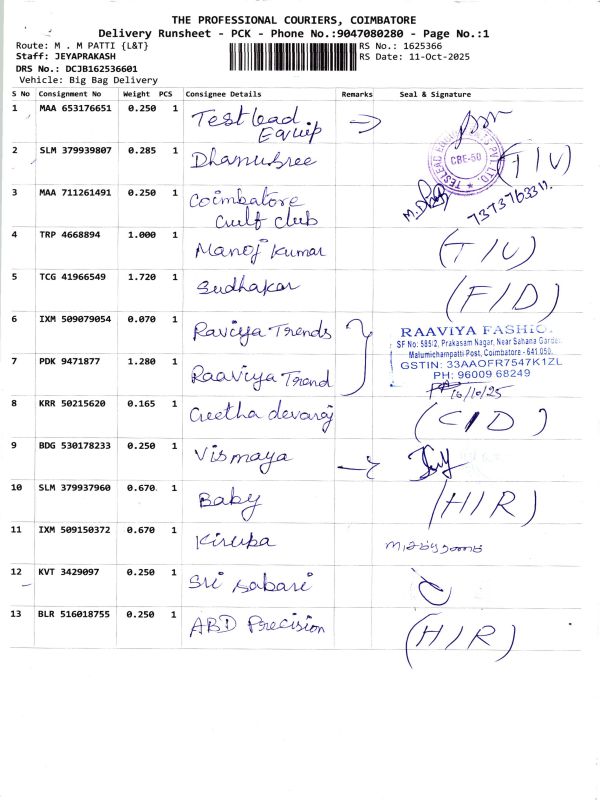 THE PROFESSIONAL COURIERS, COIMBATORE
Delivery Runsheet - PCK - Phone No.:9047080280 - Page No.:1
Route: M . M PATTI {L&T}
RS No.: 1625366
Staff: JEYAPRAKASH
RS Date: 11-Oct-2025
DRS No.: DCJB162536601
Vehicle: Big Bag Delivery
S No Consignment No Weight PCS Consignee Details Remarks Seal & Signature
1 MAA 653176651 0.250 1 Testlead Equip
2 SLM 379939807 0.285 1 Dhanusree (T/U)
CBE-50
3 MAA 711261491 0.250 1 Coimbatore Gulf club
4 TRP 4668894 1.000 1 Manoj Kumar (T/U)
5 TCG 41966549 1.720 1 Sudhakar (F/D)
6 IXM 509079054 0.070 1 Raviya Trends
RAAVIYA FASHIO
SF No: 585/2, Prakasam Nagar, Near Sahana Garden
Malumichampatti Post, Coimbatore - 641 050.
GSTIN: 33AAOFR7547K1ZL
PH: 96009 68249
7 PDK 9471877 1.280 1 Raaviya Trend
16/10/25
8 KRR 50215620 0.165 1 Geetha devaraj (C/D)
9 BDG 530178233 0.250 1 Vismaya
10 SLM 379937960 0.670 1 Baby (H/R)
11 IXM 509150372 0.670 1 Kiruba
12 KVT 3429097 0.250 1 Sri Sabari
13 BLR 516018755 0.250 1 ABD Precision (H/R)